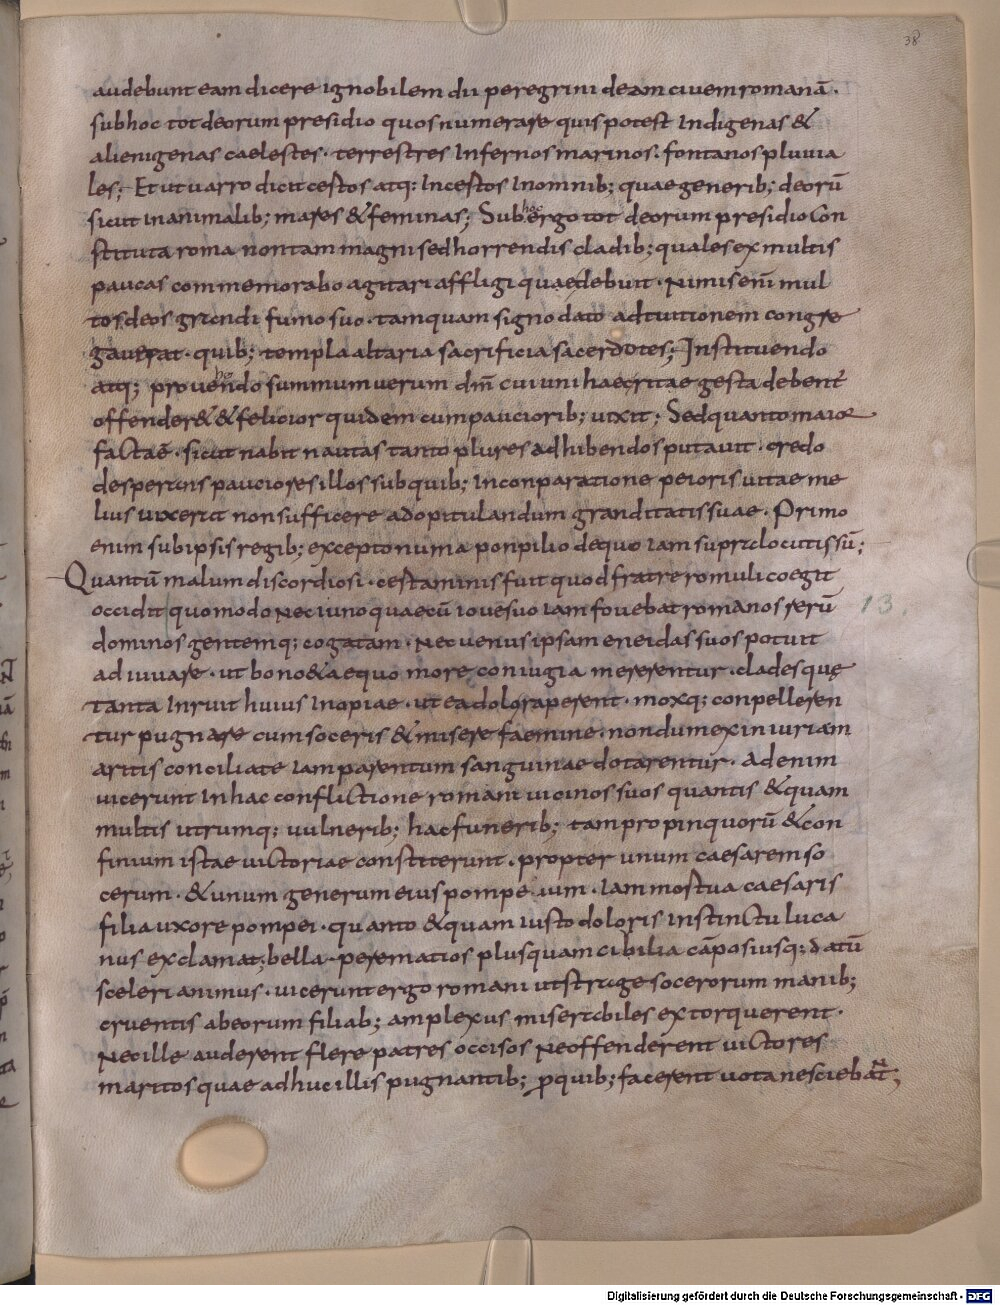 38
audebunt eam dicere ignobilem dii peregrini deam ciuem romanā ·
sub hoc tot deorum presidio quos numerare quis potest Indigenas &
alienigenas caelestes · terrestres Infernos marinos · fontanos pluuia
les; Et ut uarro dicit certos atq; Incertos Inomnib; quae generib; deorū
sicut in animalib; mares & feminas; Sub hoc ergo tot deorum presidio Con
stituta roma non tam magnis ed horrendis cladib; quales ex multis
paucas commemorabo agitari affligi quae debuit · Nimis eni mul
tos deos grandi fumo suo · tamquam signo dato ad tuitionem congre
gauerat · quib; templa altaria sacrificia sacerdotes; Instituendo
atq; prouendo summum uerum dm̄ cui uni haec ritae gesta debent
offender& & felicior quidem cum pauciorib; uixit; Sed quanto maior
facta ē · sicut nabit nautas tanto plures adhibendos putauit · credo
desperans pauciores illos sub quib; Inconparatione peioris uitae me
lius uixerat non sufficere ad opitulandum granditati suae · Primo
enim sub ipsis regib; excepto numa ponpilio de quo iam supra locutis sū;
Quantū malum discordiosi · certaminis fuit quod fratre romuli coegit
occidi quomodo Nec iuno quae cū ioue suo iam fouebat romanos rerū
dominos gentemq; togatam · Nec uenus ipsam eneidas suos potuit
adiuuare · ut bono & aequo more coniugia mererentur · cladesque
tanta Inruit huius Inopiae · ut ea dolo raperent · moxq; conpelleren
tur pugnare cum soceris & misere faemine · nondum ex iniuria m
aritis conciliate iam parentum sanguinae dotarentur · Ad enim
uicerunt In hac conflictione romani uicinos suos quantis & quam
multis utrumq; uulnerib; hac funerib; tam propinquorū & con
finium istae uictoriae constiterunt · propter unum caesarem so
cerum · & unum generum eius pompeium · Iam mostua caesaris
filia uxore pompei · quanto & quam iusto doloris instinctu luca
nus exclamat; bella · per ematios plus quam cibilia cāpos iusq; datū
sceleri animus · uicerunt ergo romani ut strage socerorum manib;
cruentis ab eorum filiab; amplexus miserabiles extorquerent ·
Nec ille auderent flere patres occisos Ne offenderent uictores
maritos quae adhuc illis pugnantib; ꝓ quib; facerent uota nesciebāt;
13.
Digitalisierung gefördert durch die Deutsche Forschungsgemeinschaft - DFG